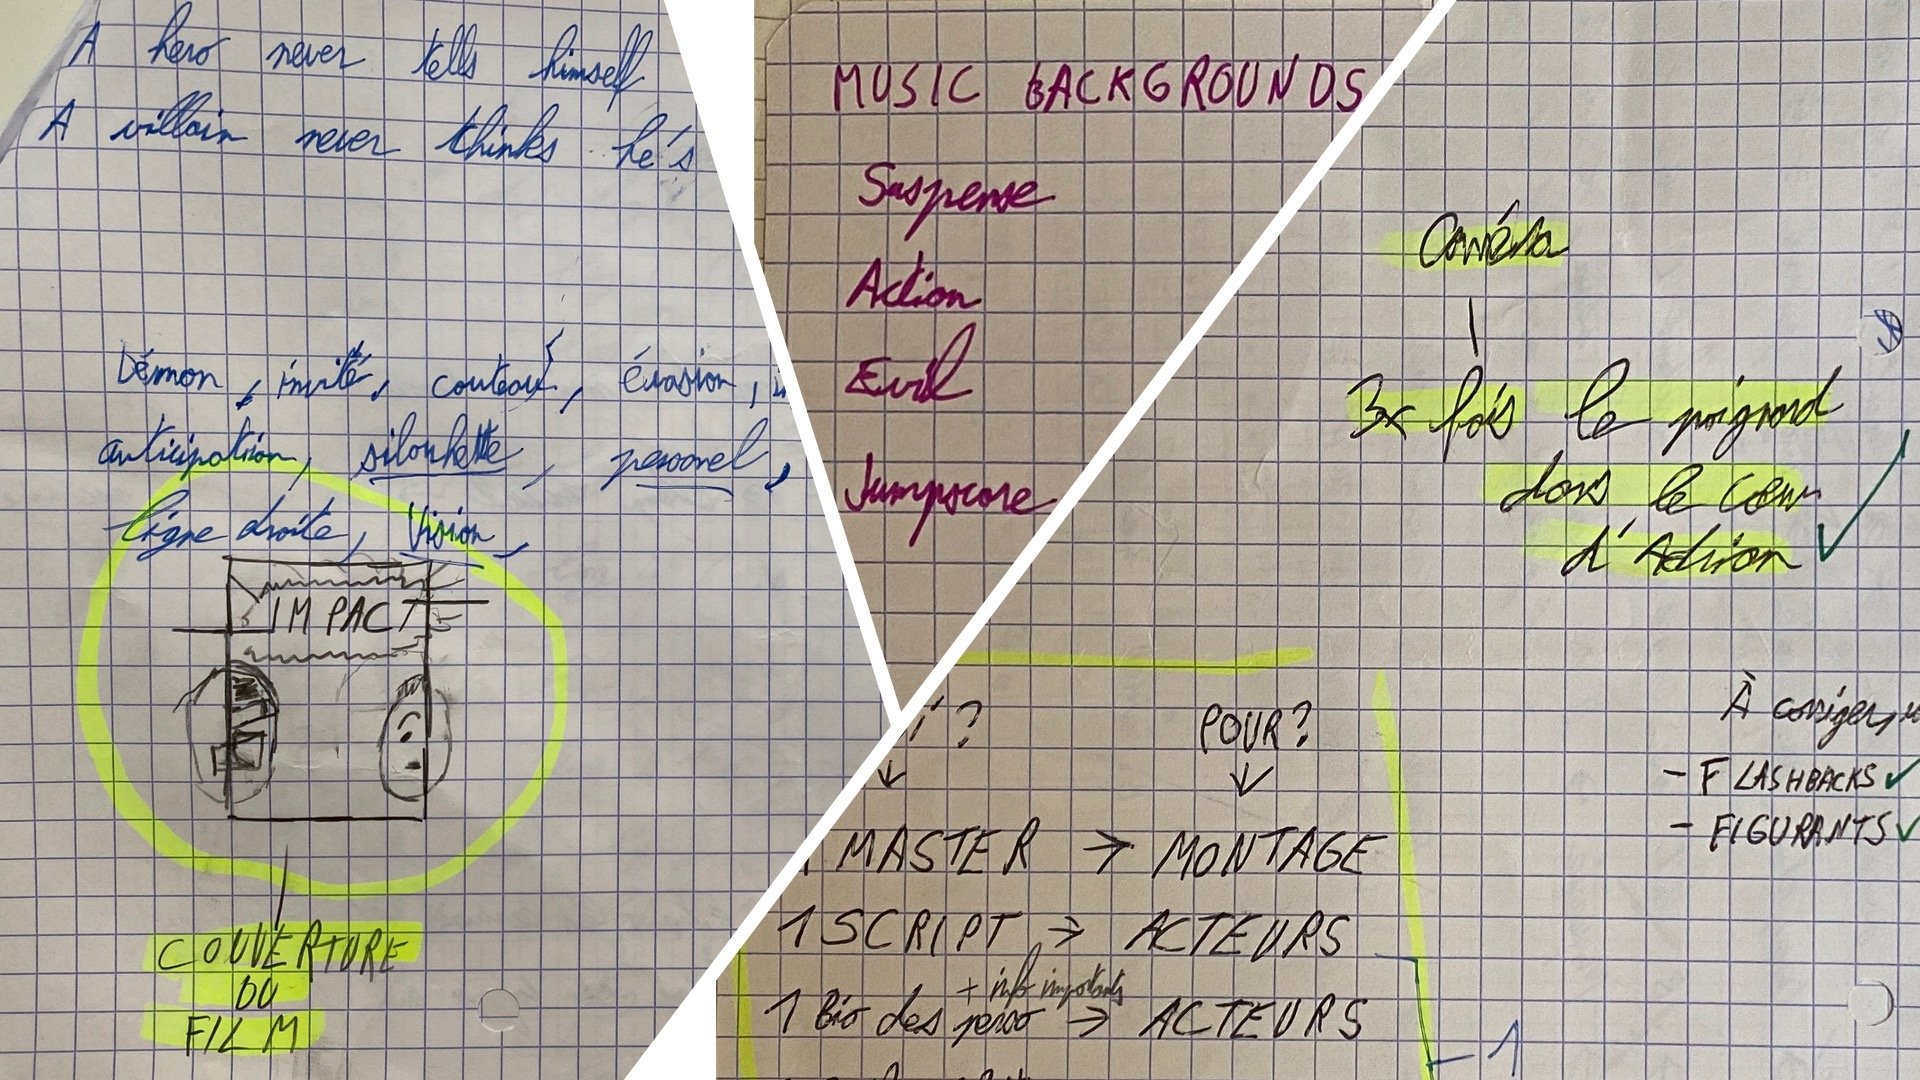 A hero never tells himself
A villain never thinks he's
Démon, invité, couteau, évasion,
anticipation, silouhette, personel,
ligne droite, Vision,
IMPACT
COUVERTURE
DU
FILM
MUSIC BACKGROUNDS
Suspense
Action
Evil
Jumpscare
Caméra
3x fois le poignard
dans le cœur
d'Adrian
? POUR?
1 MASTER → MONTAGE
1 SCRIPT → ACTEURS
+ info importants
1 Bio des perso → ACTEURS
1
À corriger,
- FLASHBACKS ✓
- FIGURANTS ✓